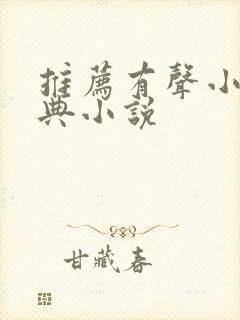 推薦有聲小
典小說
甘藏春